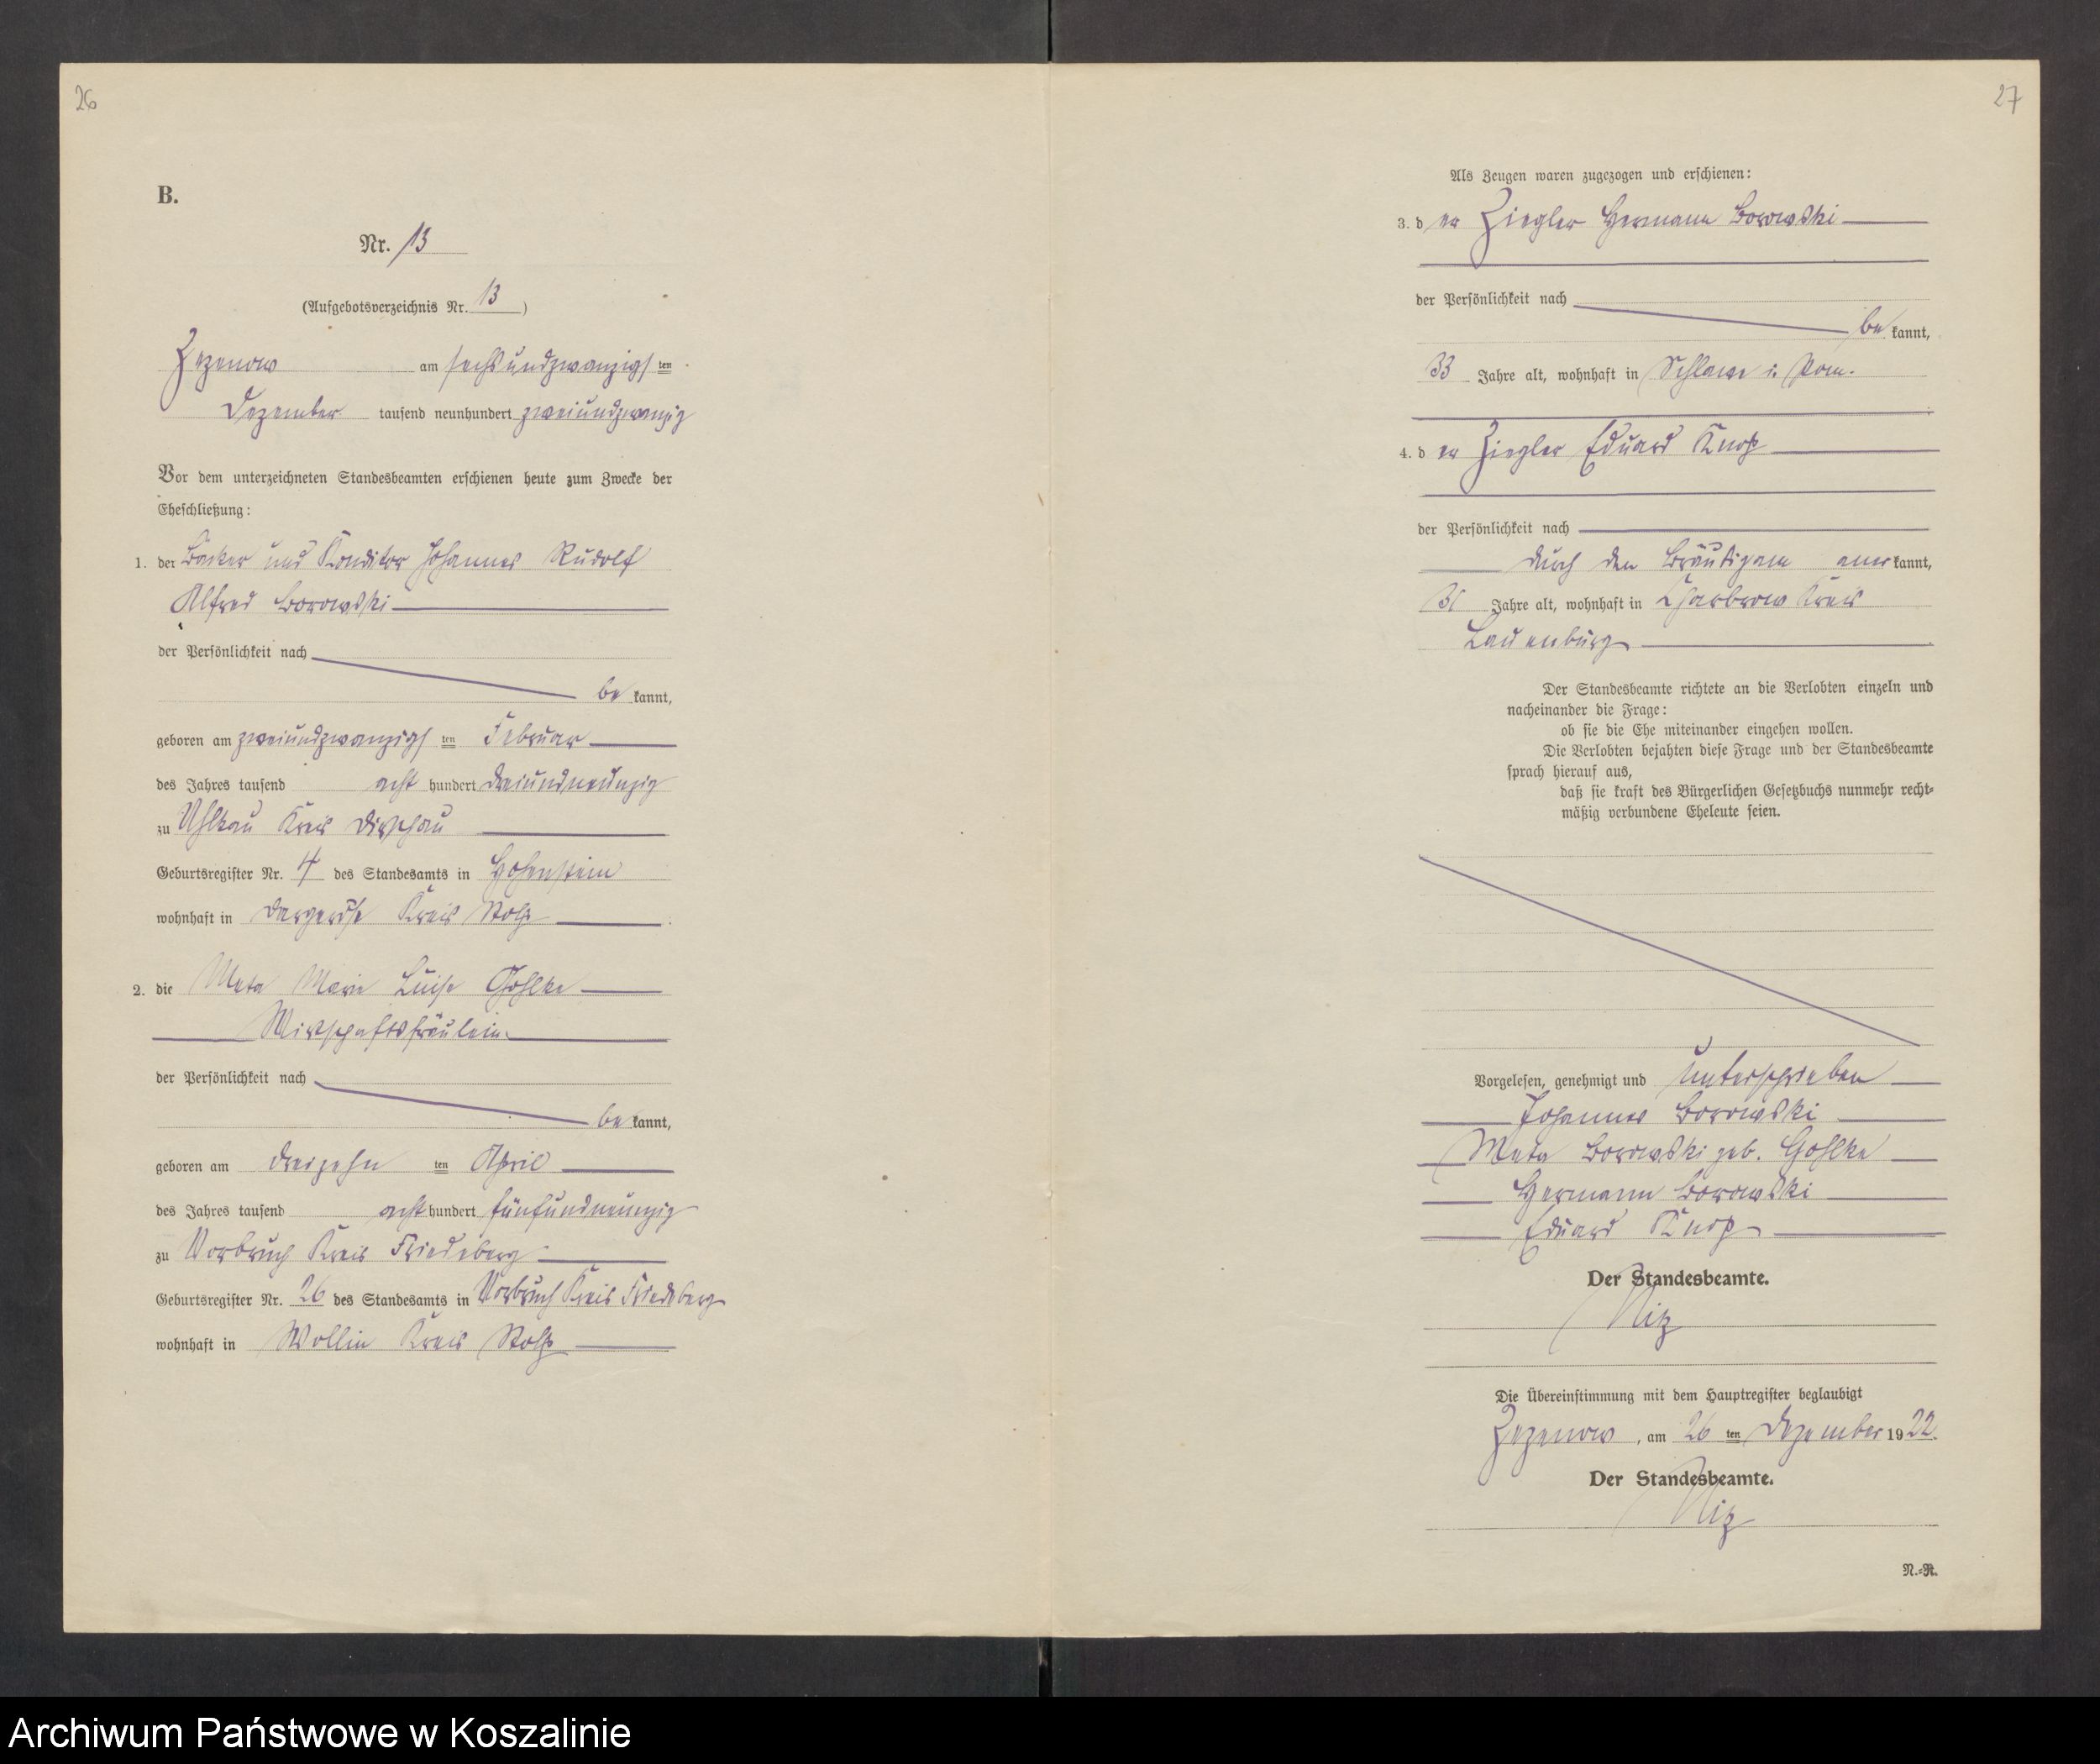 26
B.
Nr. 13
(Aufgebotsverzeichnis Nr. 13)
Zezenow am sechsundzwanzigsten
Dezember tausend neunhundert zweiundzwanzig
Vor dem unterzeichneten Standesbeamten erschienen heute zum Zwecke der
Eheschließung:
1. der Bäcker und Konditor Johannes Rudolf
Alfred Borowski
der Persönlichkeit nach
be kannt,
geboren am zweiundzwanzigsten Februar
des Jahres tausend acht hundert dreiundneunzig
zu Uhlkau Kreis Dirschau
Geburtsregister Nr. 4 des Standesamts in Hohenstein
wohnhaft in Dargeröse Kreis Stolp
2. die Meta Marie Luise Gohlke
Wirtschaftsfräulein
der Persönlichkeit nach
be kannt,
geboren am dreizehn ten April
des Jahres tausend acht hundert fünfundneunzig
zu Vorbruch Kreis Friedeberg
Geburtsregister Nr. 26 des Standesamts in Vorbruch Kreis Friedeberg
wohnhaft in Wollin Kreis Stolp
27
Als Zeugen waren zugezogen und erschienen:
3. der Ziegler Hermann Borowski
der Persönlichkeit nach
be kannt,
33 Jahre alt, wohnhaft in Schlawe i. Pom.
4. der Ziegler Eduard Knop
der Persönlichkeit nach
durch den Bräutigam anerkannt,
31 Jahre alt, wohnhaft in Charbrow Kreis
Lauenburg
Der Standesbeamte richtete an die Verlobten einzeln und
nacheinander die Frage:
ob sie die Ehe miteinander eingehen wollen.
Die Verlobten bejahten diese Frage und der Standesbeamte
sprach hierauf aus,
daß sie kraft des Bürgerlichen Gesetzbuchs nunmehr recht-
mäßig verbundene Eheleute seien.
Vorgelesen, genehmigt und unterschrieben
Johannes Borowski
Meta Borowski geb. Gohlke
Hermann Borowski
Eduard Knop
Der Standesbeamte.
Die Übereinstimmung mit dem Hauptregister beglaubigt
Zezenow, am 26 ten Dezember 1922.
Der Standesbeamte.
N.-R.
Archiwum Państwowe w Koszalinie